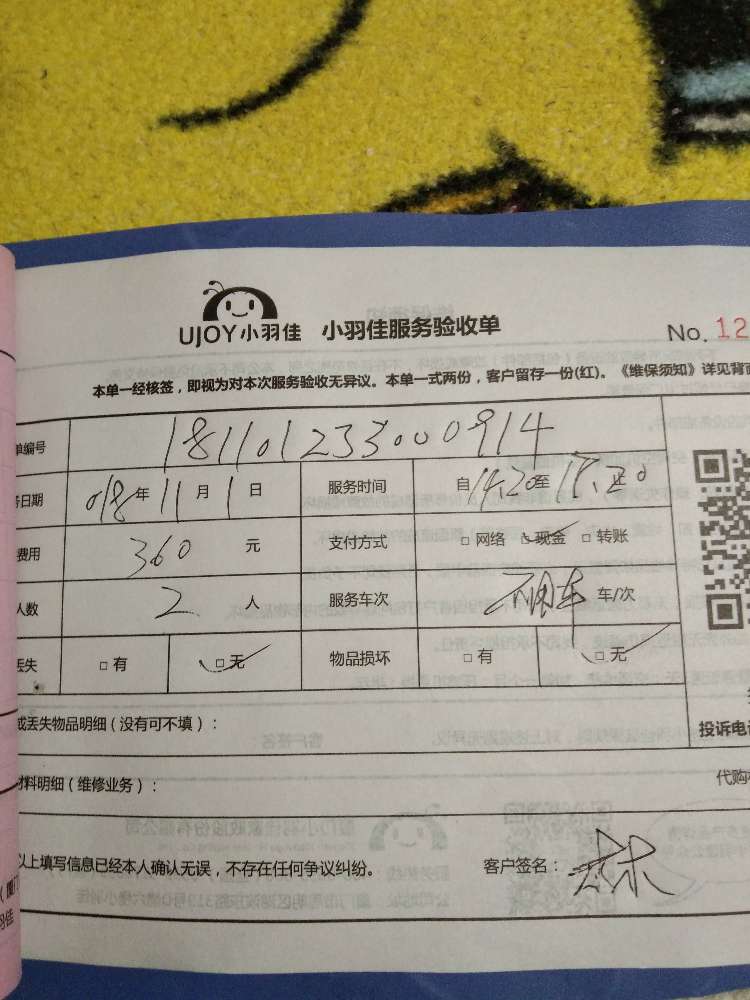 UJOY小羽佳 小羽佳服务验收单 No. 12
本单一经核签，即视为对本次服务验收无异议。本单一式两份，客户留存一份(红)。《维保须知》详见背面
单编号 181101233000914
务日期 018年 11月 1日 服务时间 自14.20至17.20
费用 360 元 支付方式 □ 网络 □ 现金 □ 转账
人数 2 人 服务车次 车/次
丢失 □ 有 □ 无 物品损坏 □ 有 □ 无
投诉电话
或丢失物品明细（没有可不填）：
材料明细（维修业务）： 代购
以上填写信息已经本人确认无误，不存在任何争议纠纷。 客户签名：